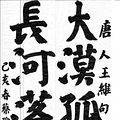 唐人王維句
大漠孤
長河落
己亥春蔡